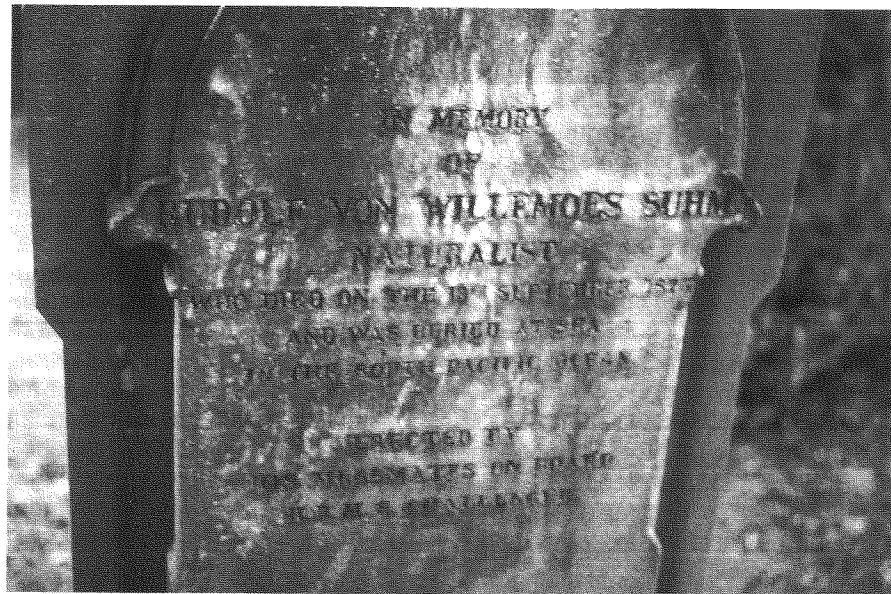 IN MEMORY
OF
RUDOLF VON WILLEMOES SUHM
NATURALIST
WHO DIED ON THE 13TH SEPTEMBER 1875
AND WAS BURIED AT SEA
IN THE PACIFIC OCEAN
ERECTED BY
HIS MESSMATES ON BOARD
H.M.S. CHALLENGER